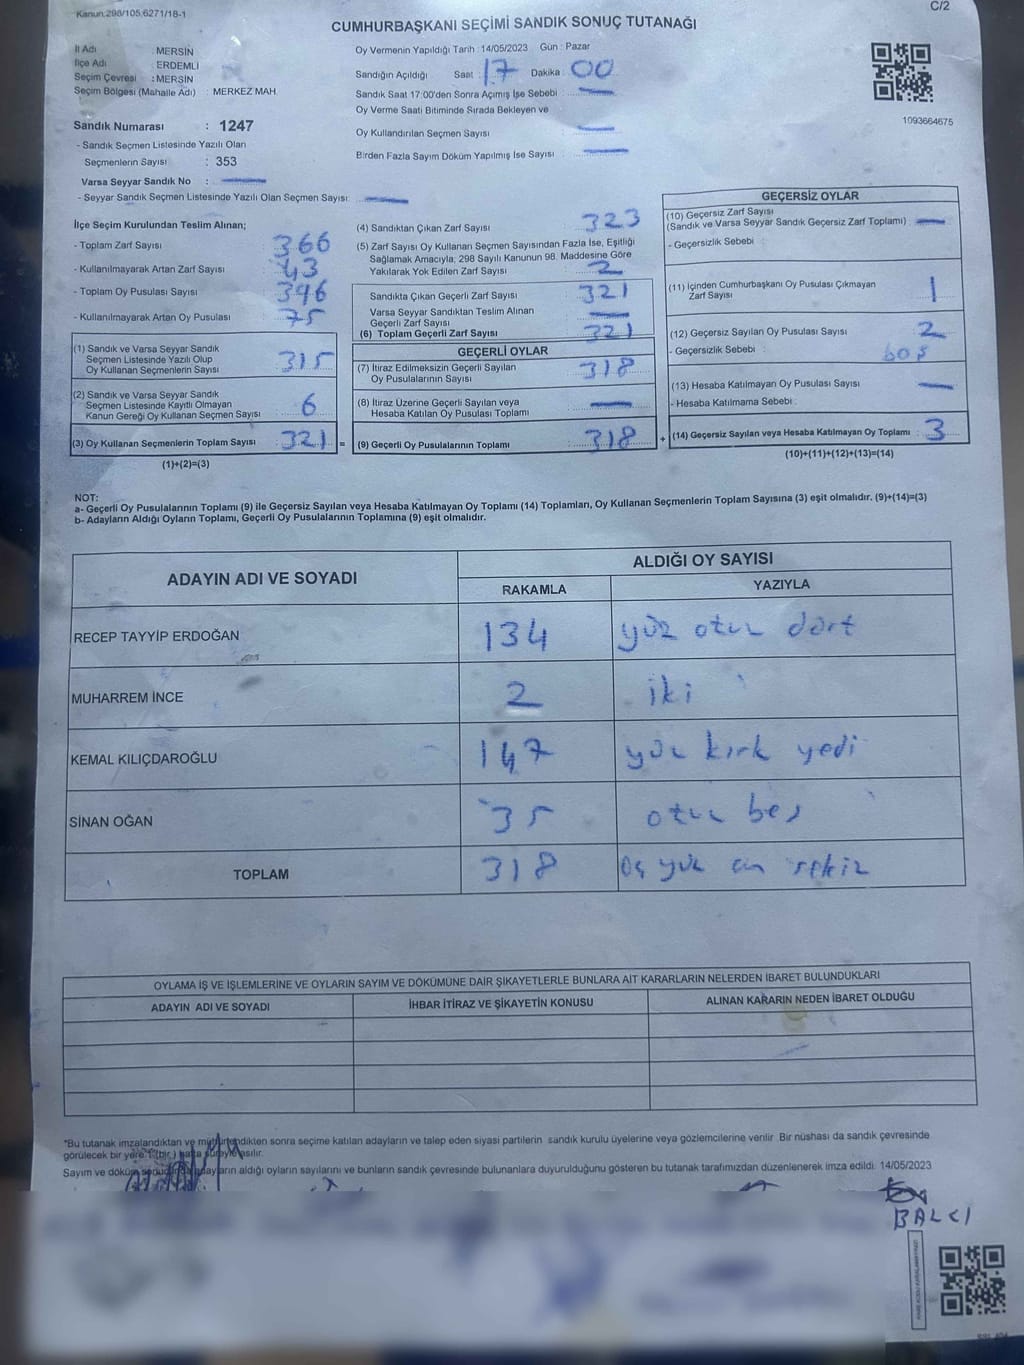 Kanun:298/105,6271/18-1
C/2
CUMHURBAŞKANI SEÇİMİ SANDIK SONUÇ TUTANAĞI
İl Adı : MERSİN
İlçe Adı : ERDEMLİ
Seçim Çevresi : MERSİN
Seçim Bölgesi (Mahalle Adı) : MERKEZ MAH.
Sandık Numarası : 1247
- Sandık Seçmen Listesinde Yazılı Olan
Seçmenlerin Sayısı : 353
Varsa Seyyar Sandık No :
- Seyyar Sandık Seçmen Listesinde Yazılı Olan Seçmen Sayısı:
Oy Vermenin Yapıldığı Tarih : 14/05/2023 Gün : Pazar
Sandığın Açıldığı Saat : 17 Dakika : 00
Sandık Saat 17:00'den Sonra Açımış İse Sebebi :
Oy Verme Saati Bitiminde Sırada Bekleyen ve
Oy Kullandırılan Seçmen Sayısı :
Birden Fazla Sayım Döküm Yapılmış İse Sayısı :
1093664675
İlçe Seçim Kurulundan Teslim Alınan;
- Toplam Zarf Sayısı : 366
- Kullanılmayarak Artan Zarf Sayısı : 43
- Toplam Oy Pusulası Sayısı : 396
- Kullanılmayarak Artan Oy Pusulası : 75
(1) Sandık ve Varsa Seyyar Sandık
Seçmen Listesinde Yazılı Olup
Oy Kullanan Seçmenlerin Sayısı : 315
(2) Sandık ve Varsa Seyyar Sandık
Seçmen Listesinde Kayıtlı Olmayan
Kanun Gereği Oy Kullanan Seçmen Sayısı : 6
(3) Oy Kullanan Seçmenlerin Toplam Sayısı : 321 =
(1)+(2)=(3)
(4) Sandıktan Çıkan Zarf Sayısı : 323
(5) Zarf Sayısı Oy Kullanan Seçmen Sayısından Fazla İse, Eşitliği
Sağlamak Amacıyla; 298 Sayılı Kanunun 98. Maddesine Göre
Yakılarak Yok Edilen Zarf Sayısı : 2
Sandıkta Çıkan Geçerli Zarf Sayısı : 321
Varsa Seyyar Sandıktan Teslim Alınan
Geçerli Zarf Sayısı :
(6) Toplam Geçerli Zarf Sayısı : 321
GEÇERLİ OYLAR
(7) İtiraz Edilmeksizin Geçerli Sayılan
Oy Pusulalarının Sayısı : 318
(8) İtiraz Üzerine Geçerli Sayılan veya
Hesaba Katılan Oy Pusulası Toplamı :
(9) Geçerli Oy Pusulalarının Toplamı : 318 +
GEÇERSİZ OYLAR
(10) Geçersiz Zarf Sayısı
(Sandık ve Varsa Seyyar Sandık Geçersiz Zarf Toplamı) :
- Geçersizlik Sebebi :
(11) İçinden Cumhurbaşkanı Oy Pusulası Çıkmayan
Zarf Sayısı : 1
(12) Geçersiz Sayılan Oy Pusulası Sayısı : 2
- Geçersizlik Sebebi : boş
(13) Hesaba Katılmayan Oy Pusulası Sayısı :
- Hesaba Katılmama Sebebi :
(14) Geçersiz Sayılan veya Hesaba Katılmayan Oy Toplamı : 3
(10)+(11)+(12)+(13)=(14)
NOT:
a- Geçerli Oy Pusulalarının Toplamı (9) ile Geçersiz Sayılan veya Hesaba Katılmayan Oy Toplamı (14) Toplamları, Oy Kullanan Seçmenlerin Toplam Sayısına (3) eşit olmalıdır. (9)+(14)=(3)
b- Adayların Aldığı Oyların Toplamı, Geçerli Oy Pusulalarının Toplamına (9) eşit olmalıdır.
ADAYIN ADI VE SOYADI ALDIĞI OY SAYISI
RAKAMLA YAZIYLA
RECEP TAYYİP ERDOĞAN 134 yüz otuz dört
MUHARREM İNCE 2 iki
KEMAL KILIÇDAROĞLU 147 yüz kırk yedi
SİNAN OĞAN 35 otuz beş
TOPLAM 318 üç yüz on sekiz
OYLAMA İŞ VE İŞLEMLERİNE VE OYLARIN SAYIM VE DÖKÜMÜNE DAİR ŞİKAYETLERLE BUNLARA AİT KARARLARIN NELERDEN İBARET BULUNDUKLARI
ADAYIN ADI VE SOYADI İHBAR İTİRAZ VE ŞİKAYETİN KONUSU ALINAN KARARIN NEDEN İBARET OLDUĞU
*Bu tutanak imzalandıktan ve mühürlendikten sonra seçime katılan adayların ve talep eden siyasi partilerin sandık kurulu üyelerine veya gözlemcilerine verilir. Bir nüshası da sandık çevresinde
görülecek bir yere 1 (bir ) hafta süreyle asılır.
Sayım ve döküm sonucunda adayların aldığı oyların sayılarını ve bunların sandık çevresinde bulunanlara duyurulduğunu gösteren bu tutanak tarafımızdan düzenlenerek imza edildi. 14/05/2023
BALCI